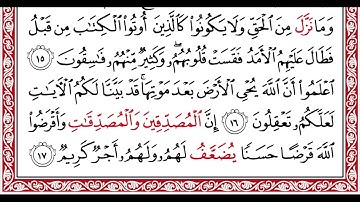 وَمَا نَزَّلَ مِنَ ٱلْحَقِّ وَلَا يَكُونُوا۟ كَٱلَّذِينَ أُوتُوا۟ ٱلْكِتَٰبَ مِن قَبْلُ
فَطَالَ عَلَيْهِمُ ٱلْأَمَدُ فَقَسَتْ قُلُوبُهُمْ وَكَثِيرٌ مِّنْهُمْ فَٰسِقُونَ ١٥
ٱعْلَمُوٓا۟ أَنَّ ٱللَّهَ يُحْىِ ٱلْأَرْضَ بَعْدَ مَوْتِهَا قَدْ بَيَّنَّا لَكُمُ ٱلْءَايَٰتِ
لَعَلَّكُمْ تَعْقِلُونَ ١٦ إِنَّ ٱلْمُصَدِّقِينَ وَٱلْمُصَدِّقَٰتِ وَأَقْرَضُوا۟
ٱللَّهَ قَرْضًا حَسَنًا يُضَعَّفُ لَهُمْ وَلَهُمْ أَجْرٌ كَرِيمٌ ١٧